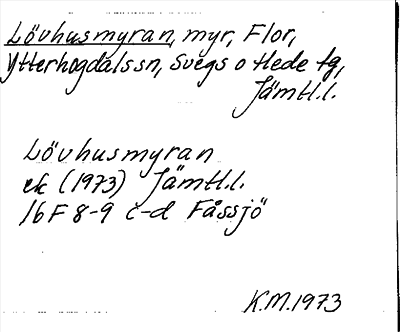 Lövhusmyran, myr, Flor,
Ytterhogdals sn, Svegs o Hede tg,
Jämtl.l.
Lövhusmyran
ek (1973) Jämtl.l.
16F 8-9 c-d Fåssjö
K.M.1973